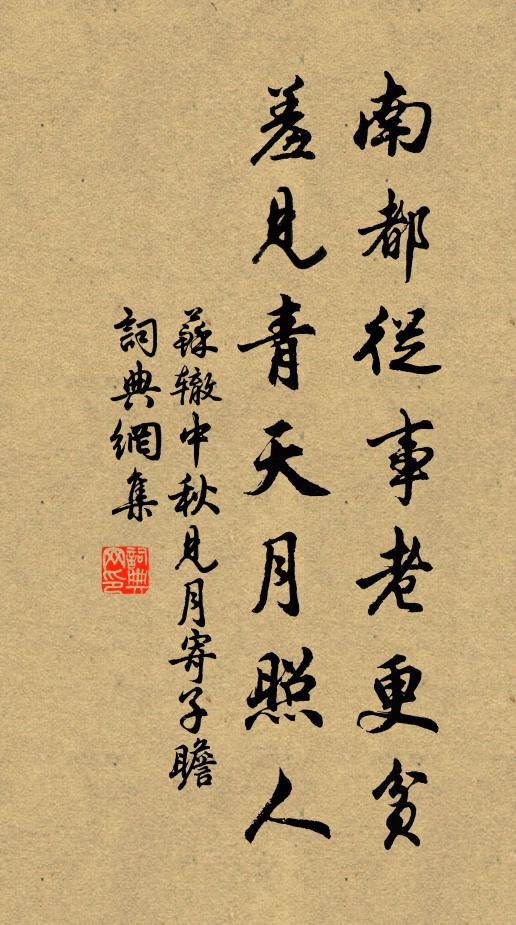 南都從事老更貧
羞見青天月照人
蘇轍中秋見月寄子瞻
詞典網集
詞典
网印